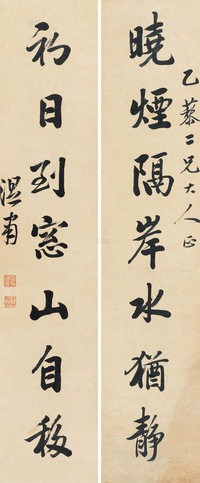 乙藜二兄大人正
曉煙隔岸水猶静
初日到窓山自移
温甫